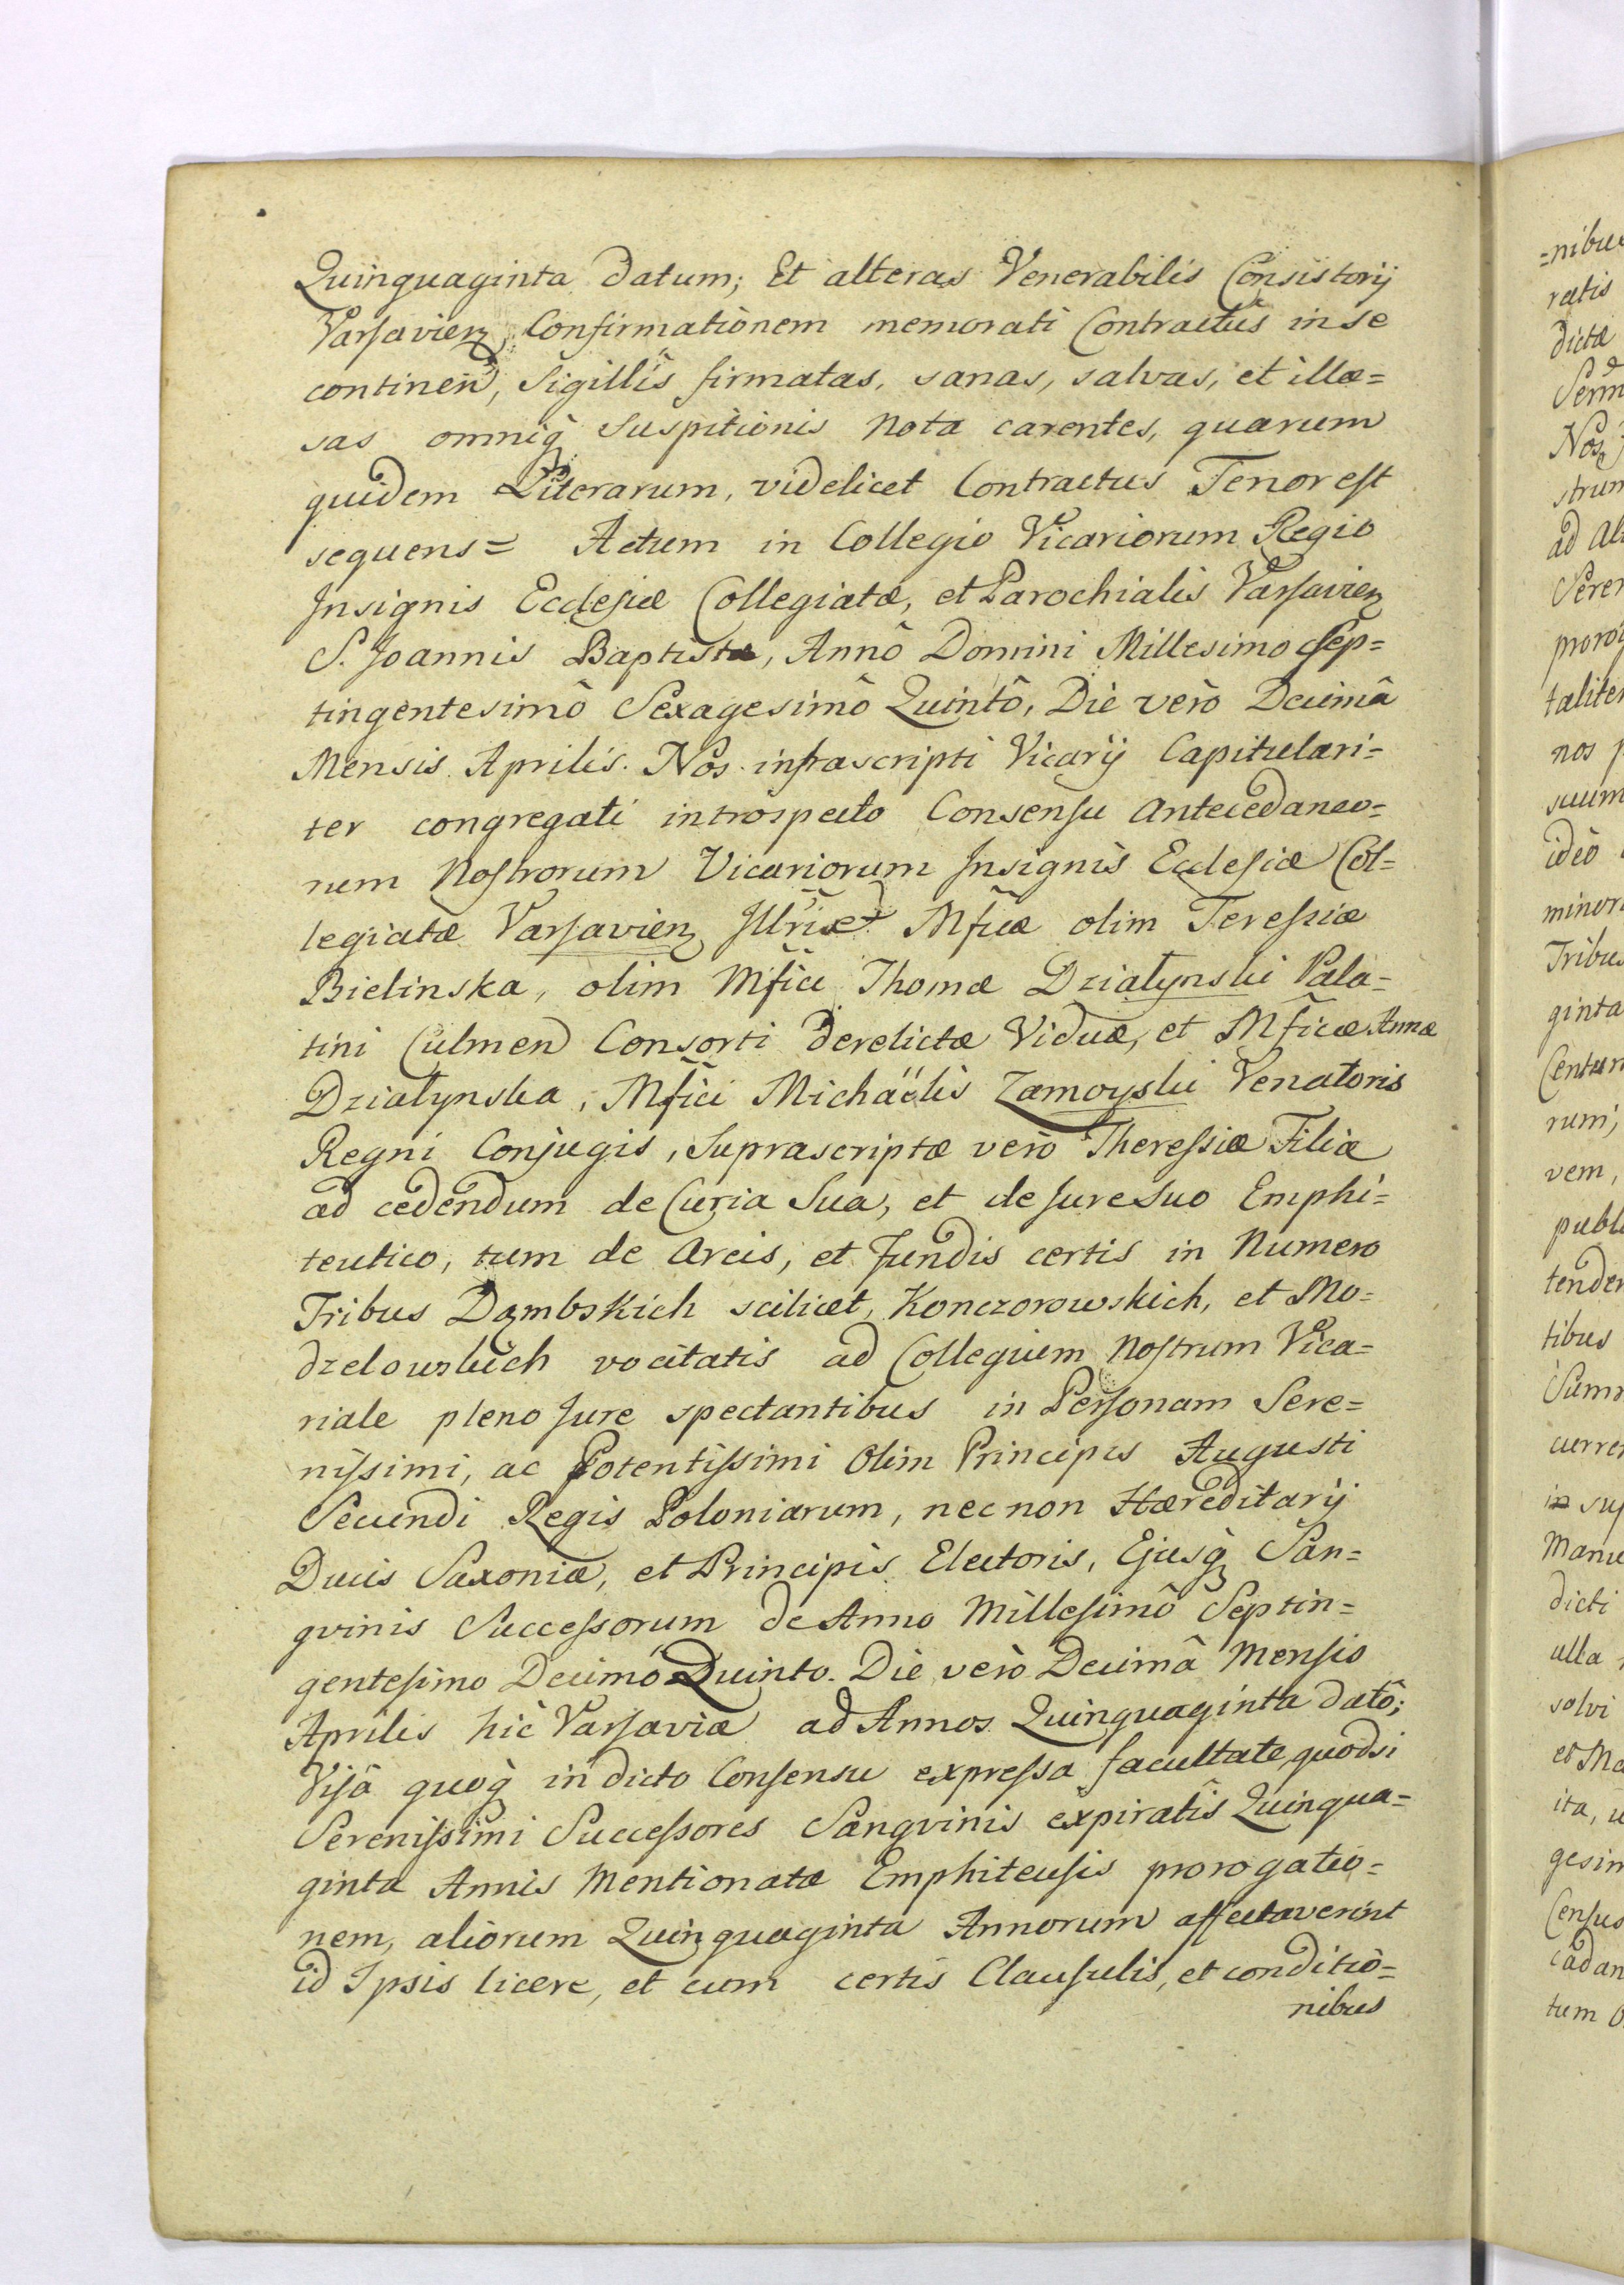 Quinquaginta datum; Et alteras Venerabilis Consistorij
Varsavien Confirmationem memorati Contractûs in se
continen, Sigillis firmatas, sanas, salvas, et illæ=
sas omniq̃ Suspitionis nota carentes, quarum
quidem Literarum, videlicet Contractus Tenor est
sequens= Actum in Collegio Vicariorum Regio
Insignis Ecclesiæ Collegiatæ, et Parochialis Varsavien
S. Joannis Baptistæ, Annô Domini Millesimo Sep=
tingentesimô Sexagesimô Quintô, Die verò Decimâ
Mensis Aprilis. Nos infrascripti Vicarij Capitulari=
ter congregati introspecto Consensu Antecedaneo=
rum Nostrorum Vicariorum Insignis Ecclesiæ Col=
legiatæ Varsavien Illris et Mficæ olim Teressiæ
Bielinska, olim Mfici Thomæ Działynski Pala=
tini Culmen Consorti derelictæ Viduæ, et Mficæ Annæ
Działynska, Mfici Michaëlis Zamoyski Venatoris
Regni Conjugis, Suprascriptæ verò Theressiæ Filiæ
ad cedendum de Curia Sua, et de Jure Suo Emphi=
teutico, tum de Areis, et Fundis certis in Numero
Tribus Dąmbskich scilicet, Konczorowskich, et Mo=
dzelowskich vocitatis ad Collegium Nostrum Vica=
riale pleno Jure spectantibus in Personam Sere=
nissimi, ac Potentissimi Olim Principis Augusti
Secundi Regis Poloniarum, nec non Hæreditarij
Ducis Saxoniæ, et Principis Electoris, Ejusq̃ San=
gvinis Successorum de Anno Millesimô Septin=
gentesimo Decimó Quinto. Die verò Decimâ Mensis
Aprilis hìc Varsaviæ ad Annos Quinquaginta datô;
Visâ quoq̃ in dicto Consensu expressa facultate, quodsi
Serenissimi Successores Sangvinis expiratis Quinqua=
ginta Annis Mentionatæ Emphiteusis prorogatio=
nem, aliorum Quinquaginta Annorum affectaverint
id Ipsis licere, et cum certis Clausulis, et conditio=
nibus
=nibus
ratis
dictæ
Nos
strum
nos
ideò
Tribus
ginta
rum,
vem,
tibus
in
dicti
ulla
solvi
ita,
tum